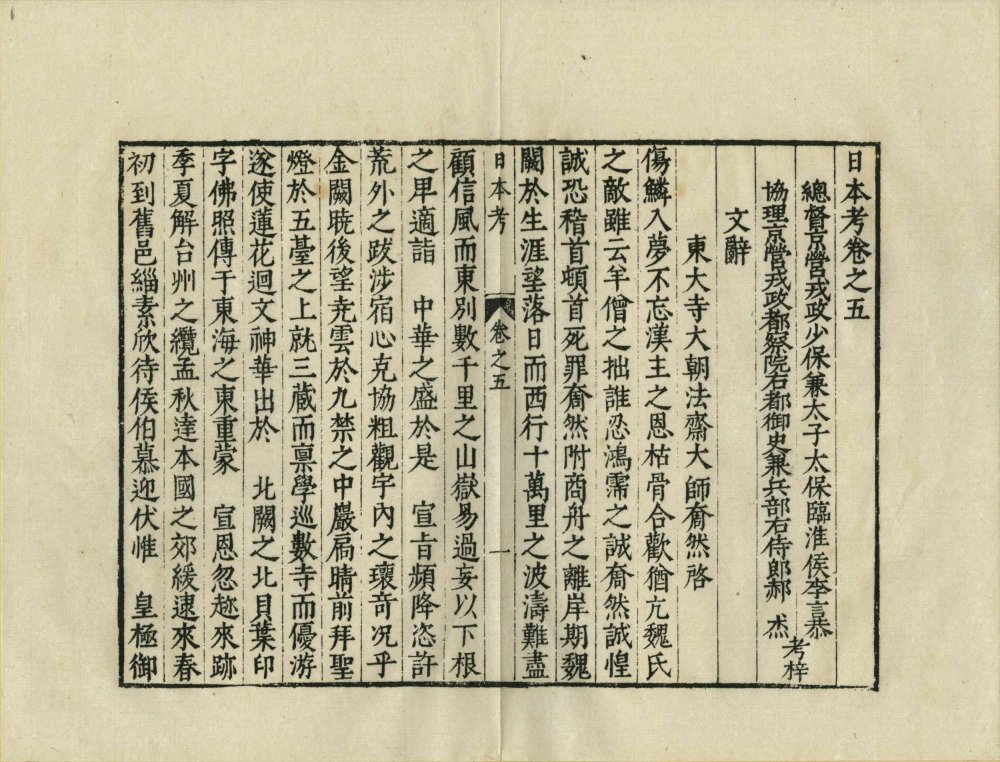 日本考卷之五
總督京營戎政少保兼太子太保臨淮侯李言恭
協理京營戎政都察院右都御史兼兵部右侍郎郝 杰
考梓
文辭
東大寺大朝法齋大師奝然啓
傷鱗入夢不忘漢主之恩枯骨合歡猶亢魏氏
之敵雖云羊僧之拙誰忍鴻霈之誠奝然誠惶
誠恐稽首頓首死罪奝然附商舟之離岸期魏
闕於生涯望落日而西行十萬里之波濤難盡
日本考 卷之五 一
顧信風而東別數千里之山嶽易過妄以下根
之卑適詣 中華之盛於是 宣旨頻降恣許
荒外之跋涉宿心克協粗觀宇內之瓌奇况乎
金闕曉後望尭雲於九禁之中巖扃晴前拜聖
燈於五臺之上就三藏而禀學巡數寺而優游
遂使蓮花迴文神華出於 北闕之北貝葉印
字佛照傳于東海之東重蒙 宣恩忽趂來跡
季夏解台州之纜孟秋達本國之郊緩逮來春
初到舊邑緇素欣待侯伯慕迎伏惟 皇極御